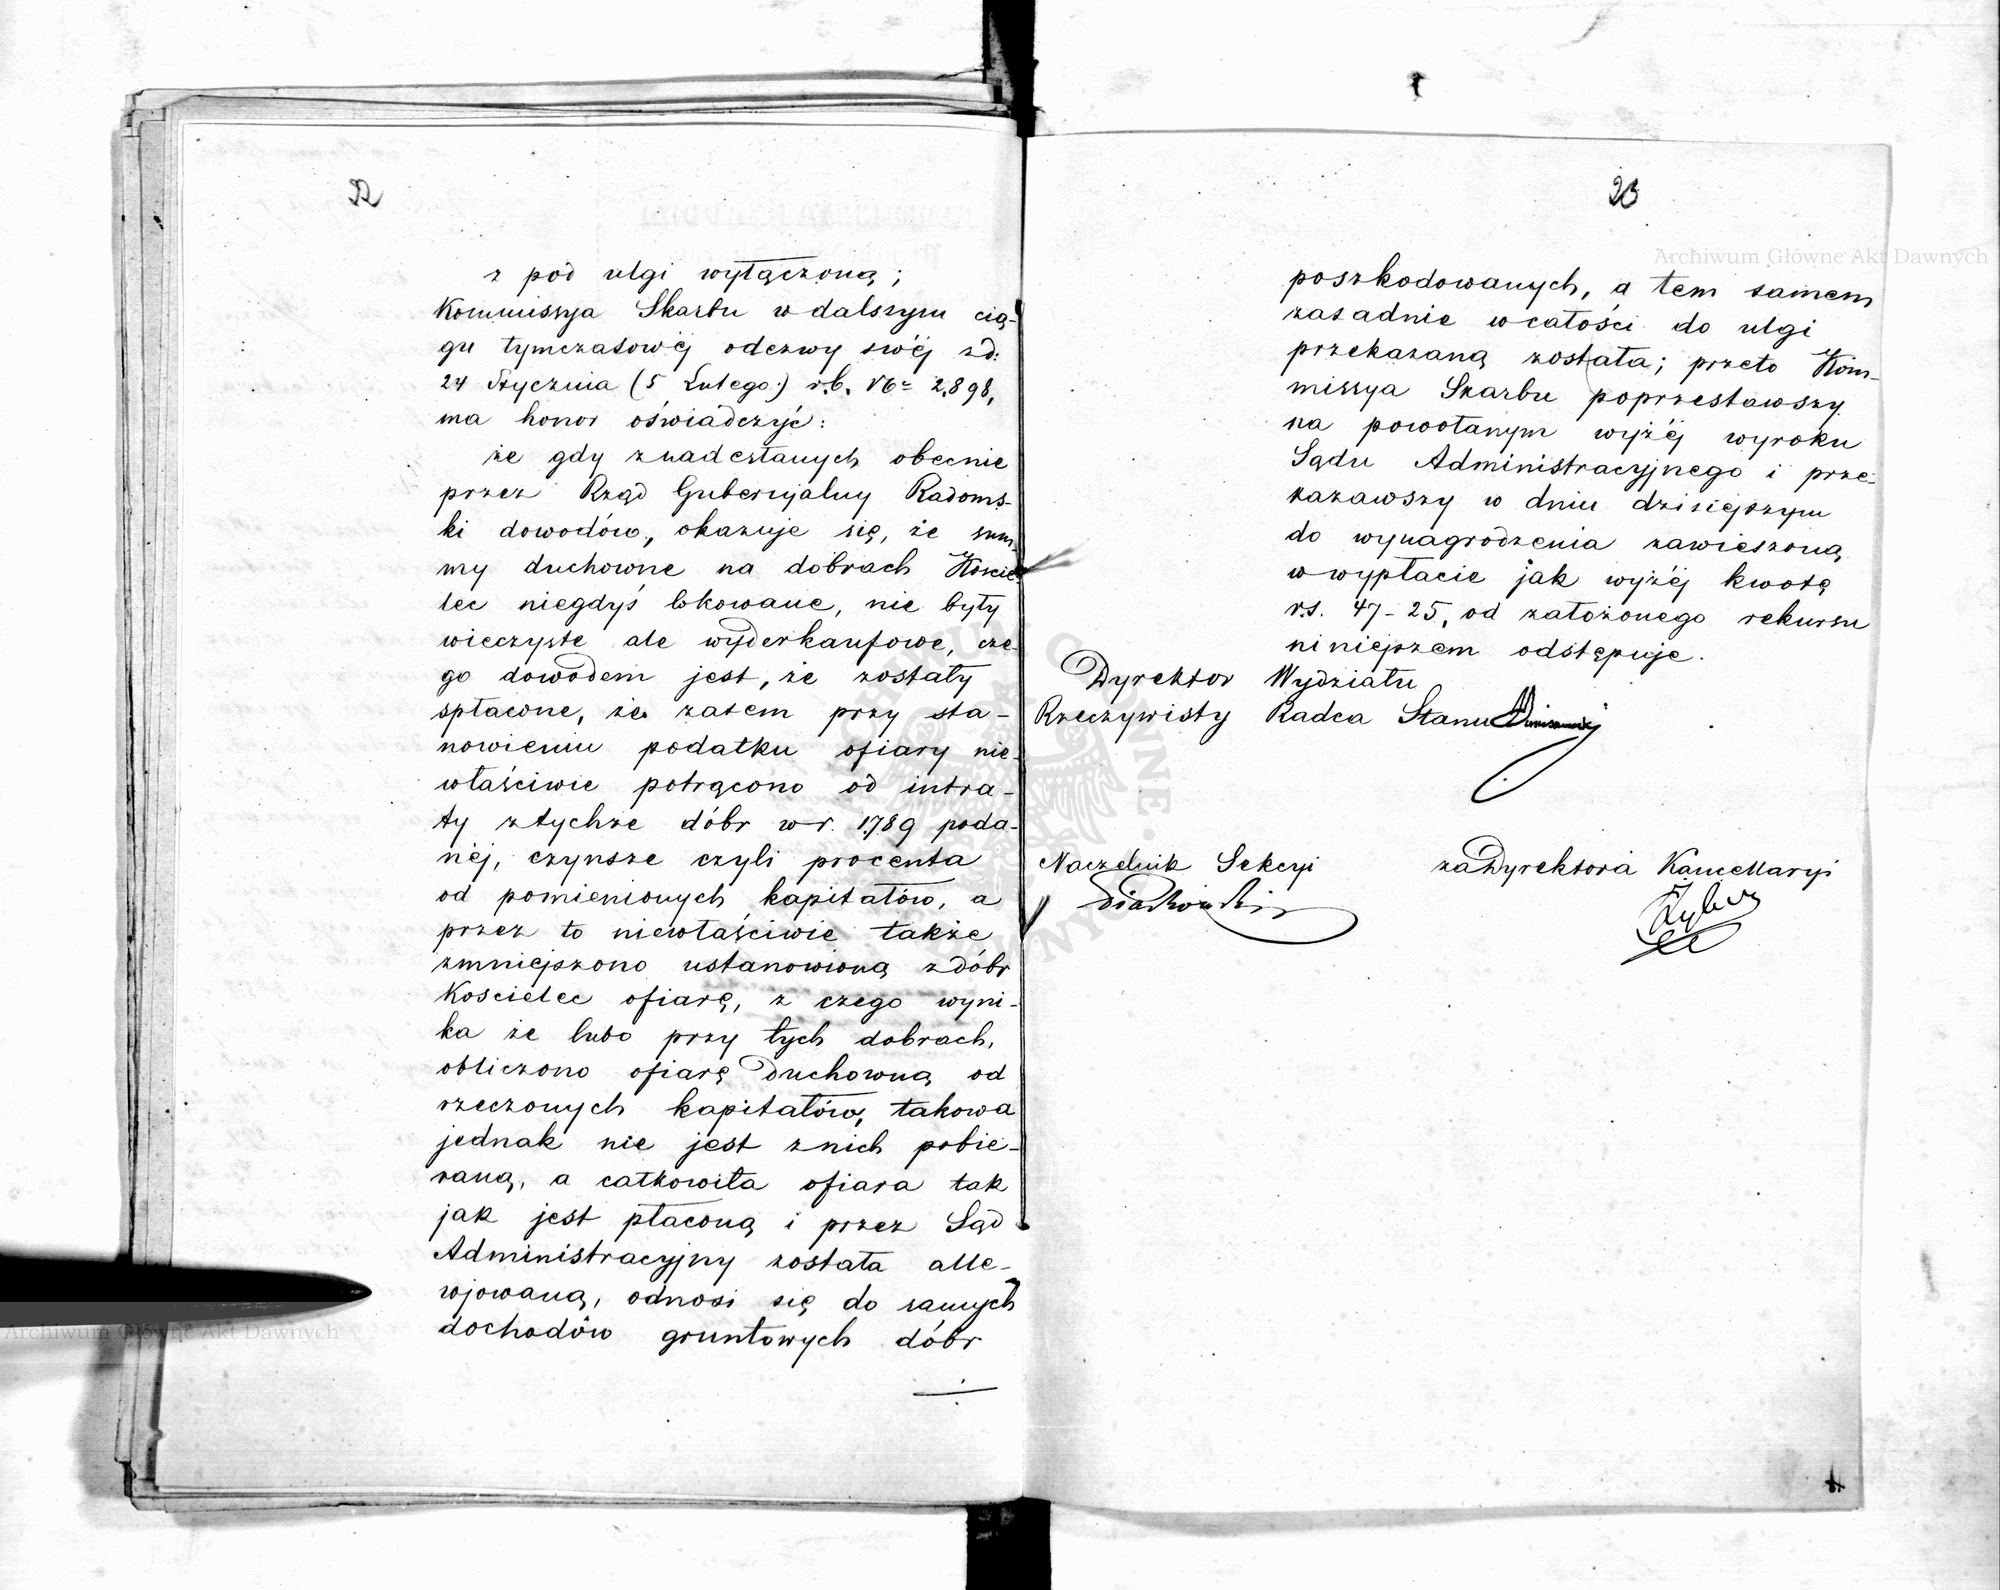 22
z pod ulgi wyłączoną;
Kommissya Skarbu w dalszym cią-
gu tymczasowéj odezwy swéj zd:
24 Stycznia (5 Lutego) r.b. No 2,898,
ma honor oświadczyć:
że gdy z nadesłanych obecnie
przez Rząd Gubernjalny Radoms-
ki dowodów, okazuje się, że sum-
my duchowne na dobrach Koscie
lec niegdyś lokowane, nie były
wieczyste ale wyderkaufowe, cze-
go dowodem jest, że zostały
spłacone, że zatem przy sta-
nowieniu podatku ofiary nie-
właściwie potrącono od intra-
ty z tychże dóbr w r. 1789 poda-
néj, czynsze czyli procenta
od pomienionych kapitałów, a
przez to niewłaściwie także
zmniejszono ustanowioną z dóbr
Koscielec ofiarę, z czego wyni-
ka że lubo przy tych dobrach,
obliczono ofiarę duchowną od
rzeczonych kapitałów, takowa
jednak nie jest z nich pobie-
raną, a całkowita ofiara tak
jak jest płaconą i przez Sąd
Administracyjny została alle-
wjowaną, odnosi się do samych
dochodów gruntowych dóbr
23
poszkodowanych, a tem samem
zasadnie w całości do ulgi
przekazaną została; przeto Kom-
missya Skarbu poprzestawszy
na powołanym wyżéj wyroku
Sądu Administracyjnego i prze-
kazawszy w dniu dzisiejszym
do wynagrodzenia zawieszoną
w wypłacie jak wyżéj kwotę
rs. 47-25, od założonego rekursu
niniejszem odstępuje.
Dyrektor Wydziału
Rzeczywisty Radca Stanu
Naczelnik Sekcyi
za Dyrektora Kancellaryi
Archiwum Główne Akt Dawnych
Archiwum Główne Akt Dawnych